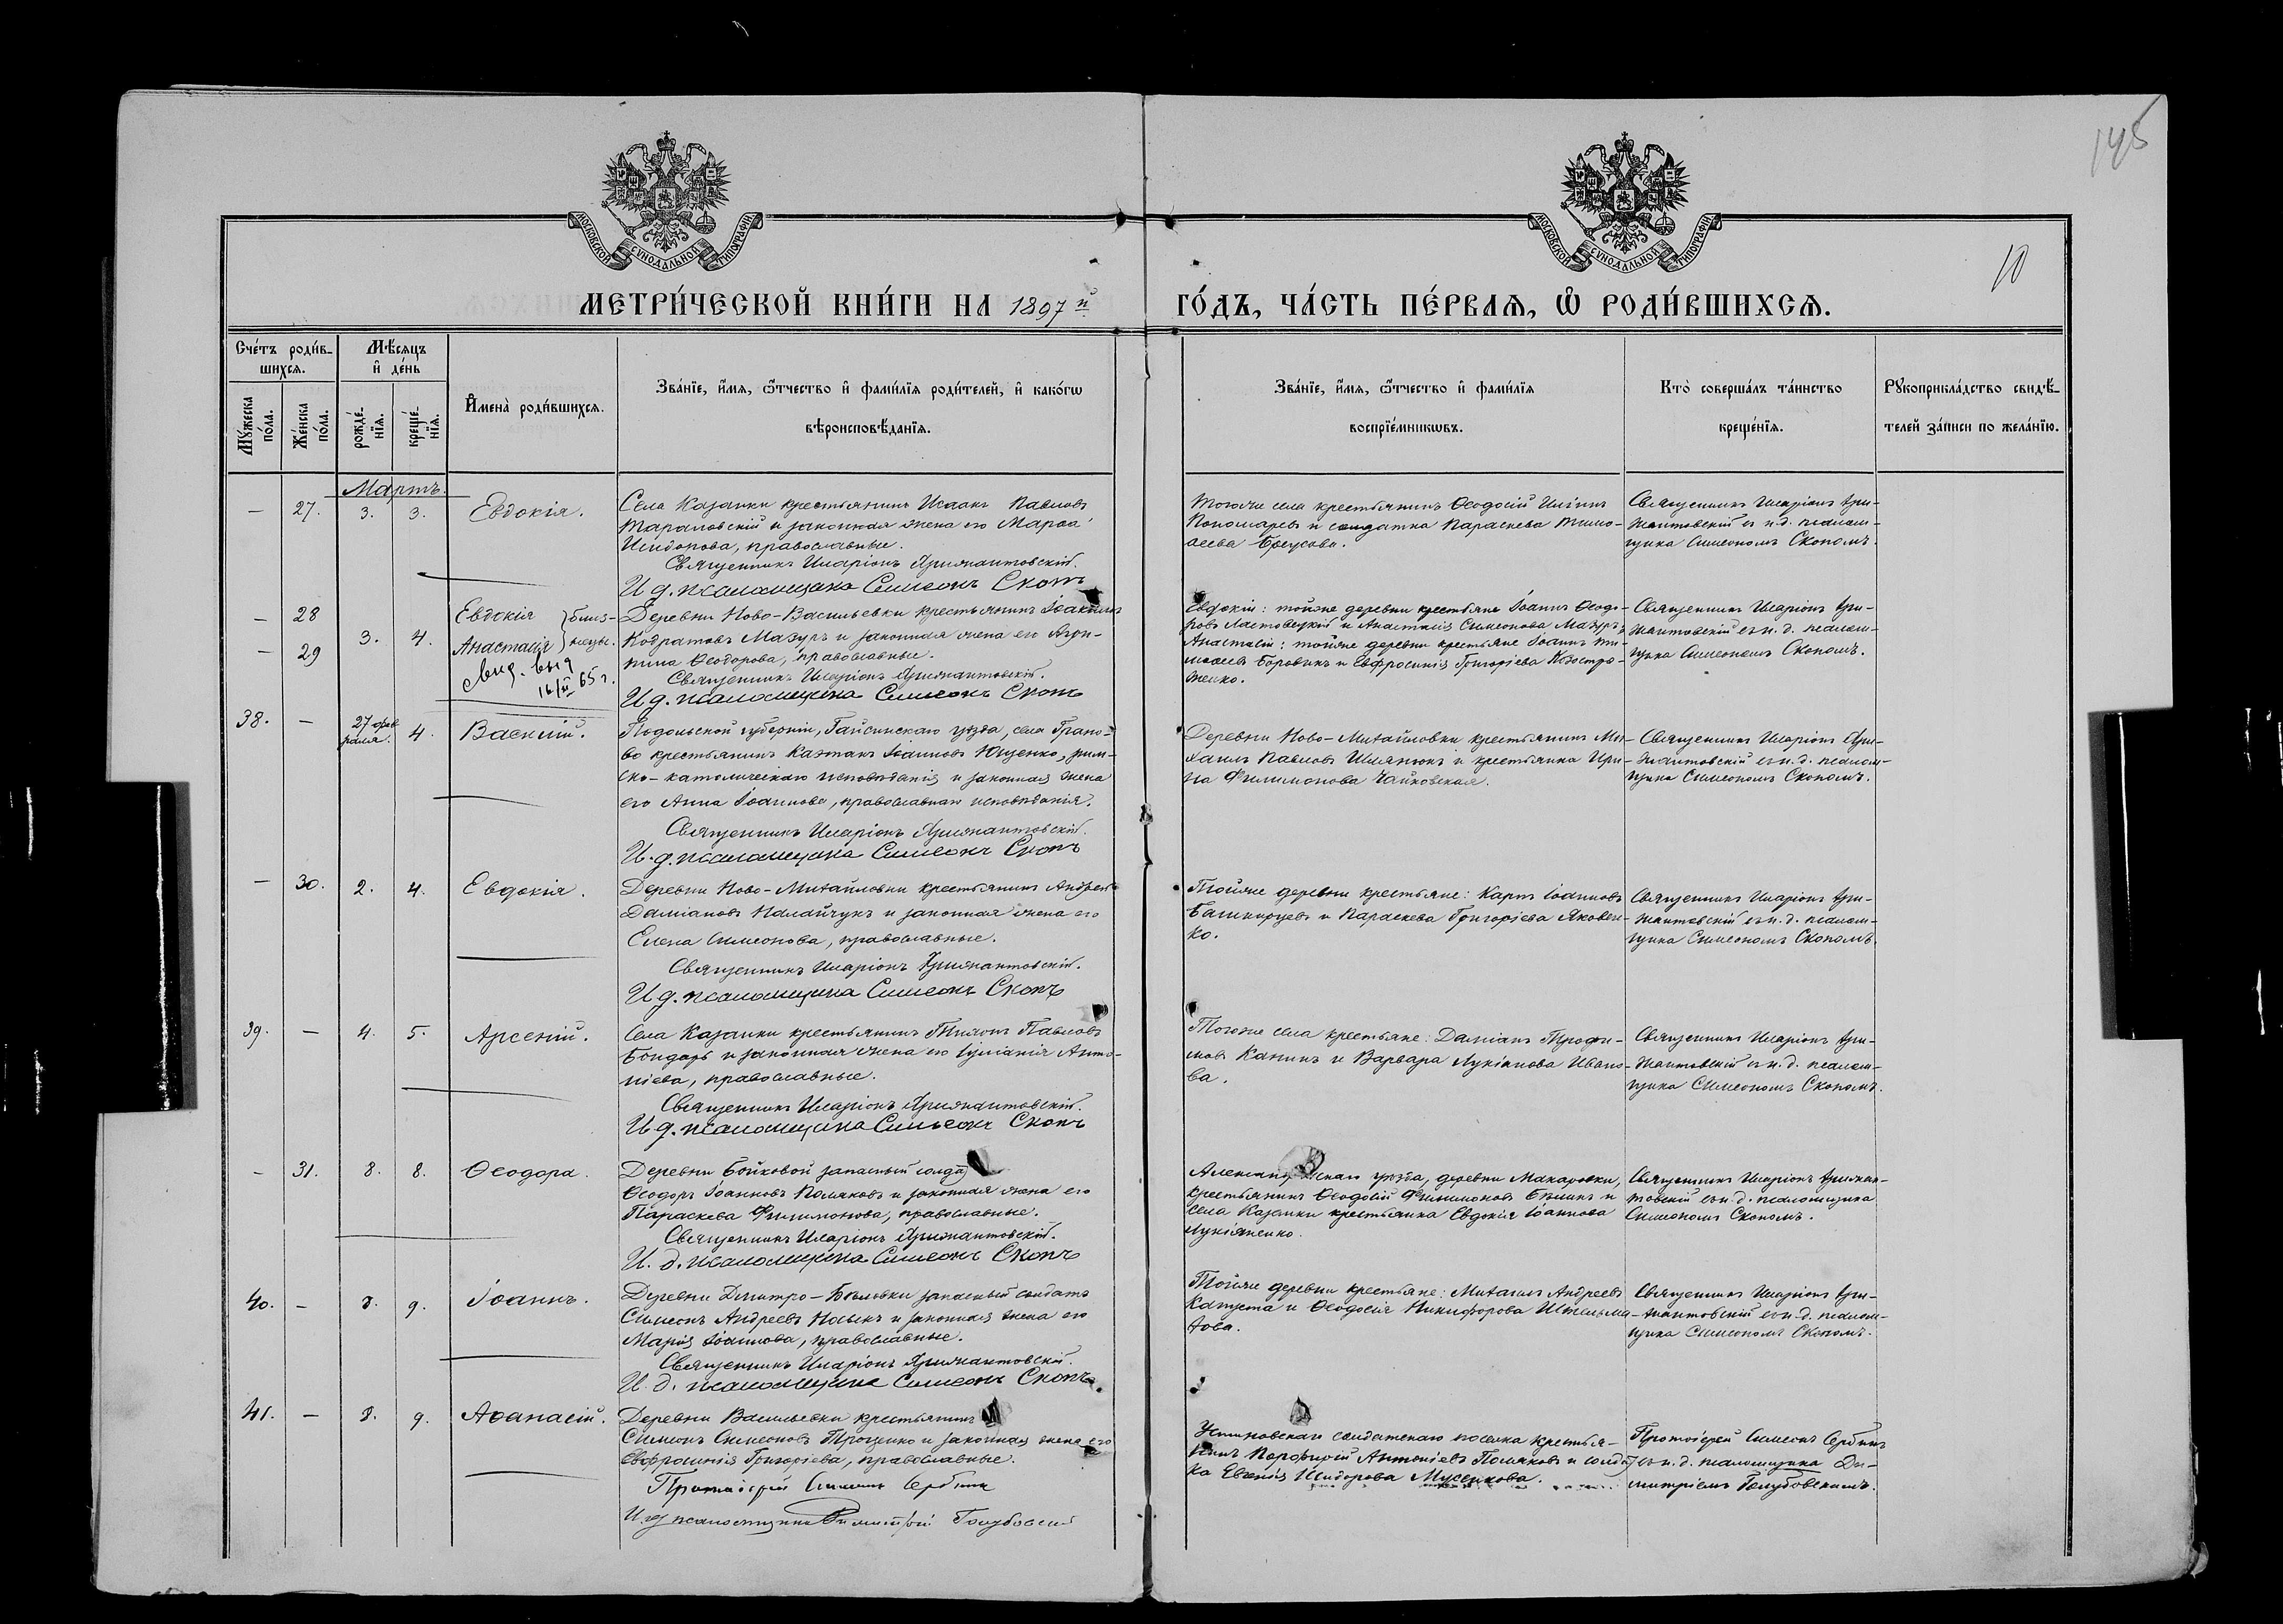 145
10
МОСКОВСКОЙ СѴНОДАЛЬНОЙ ТИПОГРАФІИ
МОСКОВСКОЙ СѴНОДАЛЬНОЙ ТИПОГРАФІИ
МЕТРИ́ЧЕСКОЙ КНИ́ГИ НА 1897й ГО́ДЪ, ЧА́СТЬ ПЕ́РВАѦ, Ѡ҆ РОДИ́ВШИХСѦ.
Сче́тъ роди́в-
шихсѧ.
Мѣ́сѧцъ
и҆ де́нь
Му́жеска по́ла.
Же́нска по́ла.
рожде́нїѧ.
креще́нїѧ.
И҆мена̀ роди́вшихсѧ.
Зва́нїе, и҆́мѧ, ѻ҆́тчество и҆ фами́лїѧ роди́телей, и҆ како́гѡ
вѣроисповѣ́данїѧ.
Зва́нїе, и҆́мѧ, ѻ҆́тчество и҆ фами́лїѧ
воспрїе́мникѡвъ.
Кто̀ соверша́лъ та́инство
креще́нїѧ.
Рꙋкоприкла́дство свидѣ́-
телей за́писи по жела́нїю.
Мартъ.
— 27. 3. 3. Евдокія.
Села Казанки крестьянинъ Исаакъ Павловъ
Тараловскій и законная жена его Марѳа
Исидорова, православные.
Священникъ Иларіонъ Аржиантовскій.
И д. псаломщика Симеонъ Скопъ
Тогоже села крестьянинъ Ѳеодосій
Пономаревъ и солдатка Параскева Тимо-
ѳеева
Священникъ Иларіонъ
съ и.д. псалом-
щика Симеономъ Скопомъ.
— 28
— 29
3. 4.
Евдокія } близ-
Анастасія } нецы.
Свид. выд
16/II 65 г.
Деревни Ново-Васильевки крестьянинъ Іоакимъ
Кодратовъ Мазуръ и законная жена его Агри-
пина Ѳеодорова, православные.
Священникъ Иларіонъ Аржиантовскій.
И д. псаломщика Симеонъ Скопъ
Евдокіи: тойже деревни крестьяне Іоаннъ Ѳеодо-
ровъ Ластовецкій и Анастасія Симеонова Мазуръ,
Анастасіи: тойже деревни крестьяне Іоаннъ Ти-
моѳеевъ Боровикъ и Евфросинія Григоріева
Священникъ Иларіонъ
съ и. д. псалом-
щика Симеономъ Скопомъ.
38. — 27 фев
раля. 4. Василій.
Подольской губерніи, Гайсинскаго уѣзда, села Грано-
во крестьянинъ Каэтанъ Іоанновъ Ющенко, рим-
ско-католическаго исповѣданія и законная жена
его Анна Іоаннова, православнаго исповѣданія.
Священникъ Иларіонъ Аржиантовскій.
И. д. псаломщика Симеонъ Скопъ
Деревни Ново-Михайловки крестьянинъ Ми-
хаилъ Павловъ и крестьянка Ири-
на Филимонова Чайковская.
Священникъ Иларіонъ
съ и. д. псалом-
щика Симеономъ Скопомъ.
— 30. 2. 4. Евдокія.
Деревни Ново-Михайловки крестьянинъ Андрей
Даміановъ Палайчукъ и законная жена его
Елена Симеонова, православные.
Священникъ Иларіонъ Аржиантовскій.
И д. псаломщика Симеонъ Скопъ
Тойже деревни крестьяне: Карпъ Іоанновъ
Башкирцевъ и Параскева Григоріева Яковен-
ко.
Священникъ Иларіонъ
съ и. д. псалом-
щика Симеономъ Скопомъ.
39. — 4. 5. Арсеній.
Села Казанки крестьянинъ Тихонъ Павловъ
Бондарь и законная жена его Іуліанія Анто-
ніева, православные.
Священникъ Иларіонъ Аржиантовскій.
И д. псаломщика Симеонъ Скопъ
Тогоже села крестьяне: Даміанъ Трофи-
мовъ Канинъ и Варвара Лукіанова Ивано-
ва.
Священникъ Иларіонъ
съ и. д. псалом-
щика Симеономъ Скопомъ.
— 31. 8. 8. Ѳеодора.
Деревни Бойковой запасный солдатъ
Ѳеодоръ Іоанновъ Поляковъ и законная жена его
Параскева Филимонова, православные.
Священникъ Иларіонъ Аржиантовскій.
И. д. псаломщика Симеонъ Скопъ
уѣзда, деревни Макаровки,
крестьянинъ Ѳеодосій Филимоновъ и
села Казанки крестьянка Евдокія Іоаннова
Лукіяненко.
Священникъ Иларіонъ
съ и. д. псаломщика
Симеономъ Скопомъ.
40. — 8. 9. Іоаннъ.
Деревни Дмитро-Бѣловки запасный солдатъ
Симеонъ Андреевъ и законная жена его
Марія Іоаннова, православные.
Священникъ Иларіонъ Аржиантовскій.
И. д. псаломщика Симеонъ Скопъ.
Тойже деревни крестьяне: Михаилъ Андреевъ
Капуста и Ѳеодосія Никифорова
Священникъ Иларіонъ
съ и. д. псалом-
щика Симеономъ Скопомъ.
41. — 8. 9. Аѳанасій.
Деревни Васильевки крестьянинъ
Симеонъ Симеоновъ Троценко и законная жена его
Евфросинія Григоріева, православные.
Протоіерей Симеонъ Сербинъ
И. д. псаломщика Димитрій Голубовскій
солдатскаго поселка крестья-
нинъ Порфирій Антоніевъ Поляковъ и солдат-
ка Евгенія Исидорова Мусенкова.
Протоіерей Симеонъ Сербинъ
съ и. д. псаломщика Ди-
митріемъ Голубовскимъ.